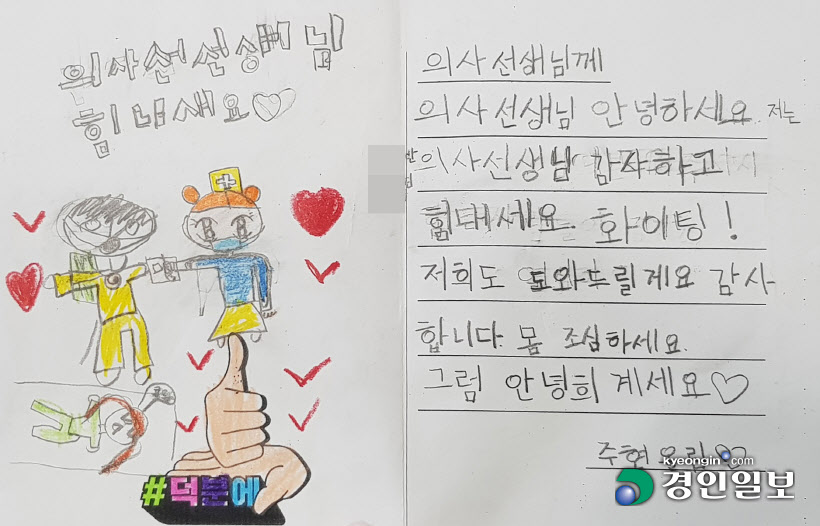 의사선선생님
힘내세요♡
#덕분에
의사선생님께
의사선생님 안녕하세요. 저는
의사선생님 감사하고
힘내세요. 화이팅!
저희도 도와드릴게요 감사
합니다. 몸 조심하세요.
그럼 안녕히 계세요♡
주현
kyeongin.com
경인일보